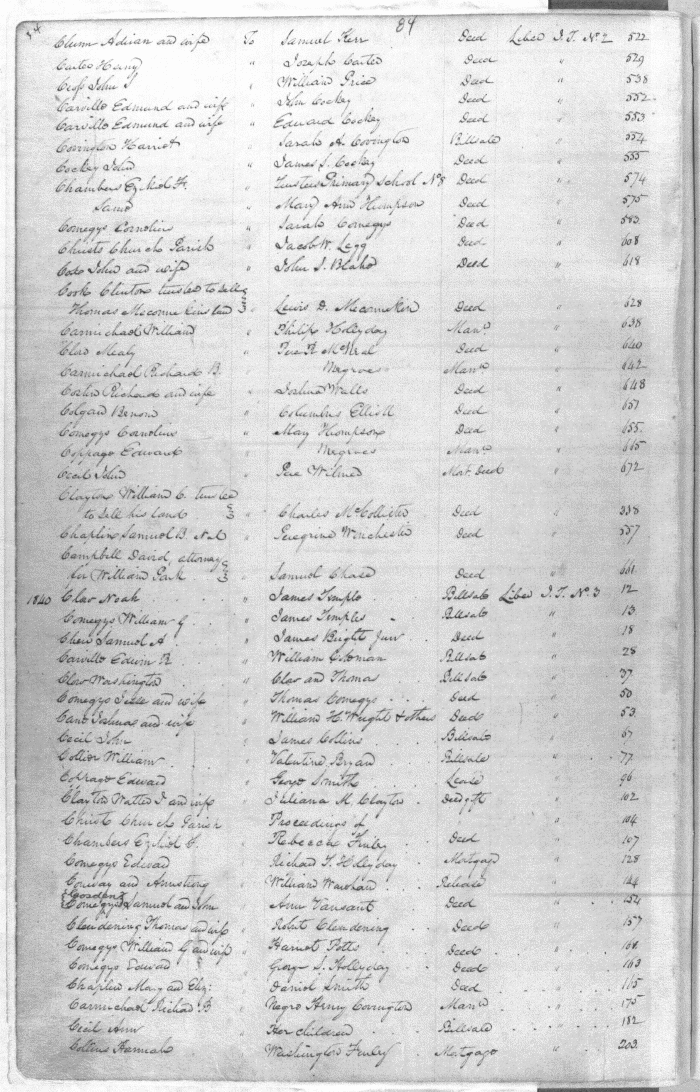 84 84
Clunn Adrian and wife To Samuel Kerr Deed Liber J.T. No 2 522
Carter Henry " Joseph Carter Deed " 529
John T " William Price Deed " 538
Carvill Edmund and wife " John Cockey Deed " 552
Carvill Edmund and wife " Edward Cockey Deed " 553
Covington Harriet " Sarah A. Covington Billsale " 554
Cockey John " James S. Cockey Deed " 555
Chambers " Trustees Primary School No 8 Deed " 574
Same " Mary Ann Thompson Deed " 575
Comegys Cornelius " Sarah Comegys Deed " 583
Christ Church Parish " Jacob W. Legg Deed " 608
Cox John and wife " John S. Blake Deed " 618
Cook Clinton trustee to sell
Thomas land " Lewis D. Deed " 628
Carmichael William " Philip Hollyday Mann " 638
Deed " 640
Carmichael Richard B. " Negroes Mann " 642
Richard and wife " Joshua Watts Deed " 648
Colgan " Columbus Elliott Deed " 651
Comegys Cornelius " Mary Thompson Deed " 655
Coppage Edward " Negroes Mann " 665
Cecil John " Pere Wilmer Mort. Deed " 672
Clayton William C. trustee
to sell his land " Charles McCollister Deed " 338
Chaplin Samuel B. " Peregrine Winchester Deed " 557
Campbell David, attorney
for William Park " Samuel Chase Deed " 661
1840 Claw Noah " James Temple Billsale Liber J.T. No 3 12
Comegys William G " James Temples Billsale " 13
Chew Samuel A " James Bright Junr Deed " 18
Carvill Edwin R " William Coleman Billsale " 28
Claw Washington " Claw and Thomas Billsale " 37
Comegys Jesse and wife " Thomas Comegys Deed " 50
and wife " William H. Wright & others Deed " 53
Cecil John " James Collins Billsale " 67
Collier William " Valentine Bryan Billsale " 77
Coppage Edward " George Smith Lease " 96
Clayton Walter J and wife " Juliana M. Clayton Deed gift " 102
Christ Church Parish " Proceedings of " 104
Chambers Ezekiel F. " Rebecca Finley Deed " 107
Comegys Edward " Richard T. Hollyday Mortgage " 128
Conway and Armstrong " William Release " 144
Comegys Samuel and John " Ann Vansant Deed " 154
Clendening Thomas and wife " Robert Clendening Deed " 157
Comegys William G and wife " Harriet Potts Deed "
Comegys Edward " George S. Hollyday Deed " 163
Chaplin Mary and Eliz: " Daniel Smith Deed " 165
Carmichael Richard B " Negro Henry Covington Mann " 175
Cecil Ann " Her children Billsale " 182
Collins Hannah " Washington Finley Mortgage " 203